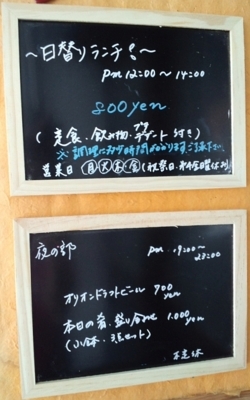 〜日替りランチ!〜
pm 12:00〜14:00
800yen
(定食・飲み物・プチデザート付き)
※調理に多少時間がかかります ご了承下さい。
営業日 月火木金(祝祭日・第4金曜休み)
夜の部
pm 19:00〜
23:00
オリオンドラフトビール 900
yen
本日の肴 盛り合わせ 1.000
yen
(小鉢・3点セット)
不定休